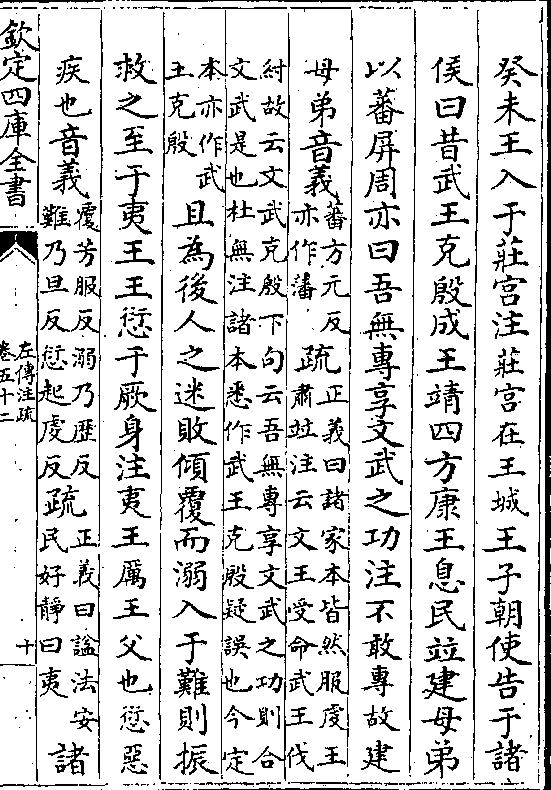 癸未王入于莊宮注莊宮在王城王子朝使告于諸
侯曰昔武王克殷成王靖四方康王息民竝建母弟
以蕃屏周亦曰吾無專享文武之功注不敢專故建
母弟音義
蕃方元反
亦作藩
疏
正義曰諸家本皆然服虔王
肅竝注云文王受命武王伐
紂故云文武克殷下句云吾無專享文武之功則合
文武是也杜無注諸本悉作武王克殷疑誤也今定
本亦作武
王克殷
且為後人之迷敗傾覆而溺入于難則振
救之至于夷王王愆于厥身注夷王厲王父也愆惡
疾也音義
覆芳服反溺乃歷反
難乃旦反愆起虔反
疏
正義曰諡法安
民好靜曰夷
諸
欽定四庫全書
左傳注疏
卷五十二
十